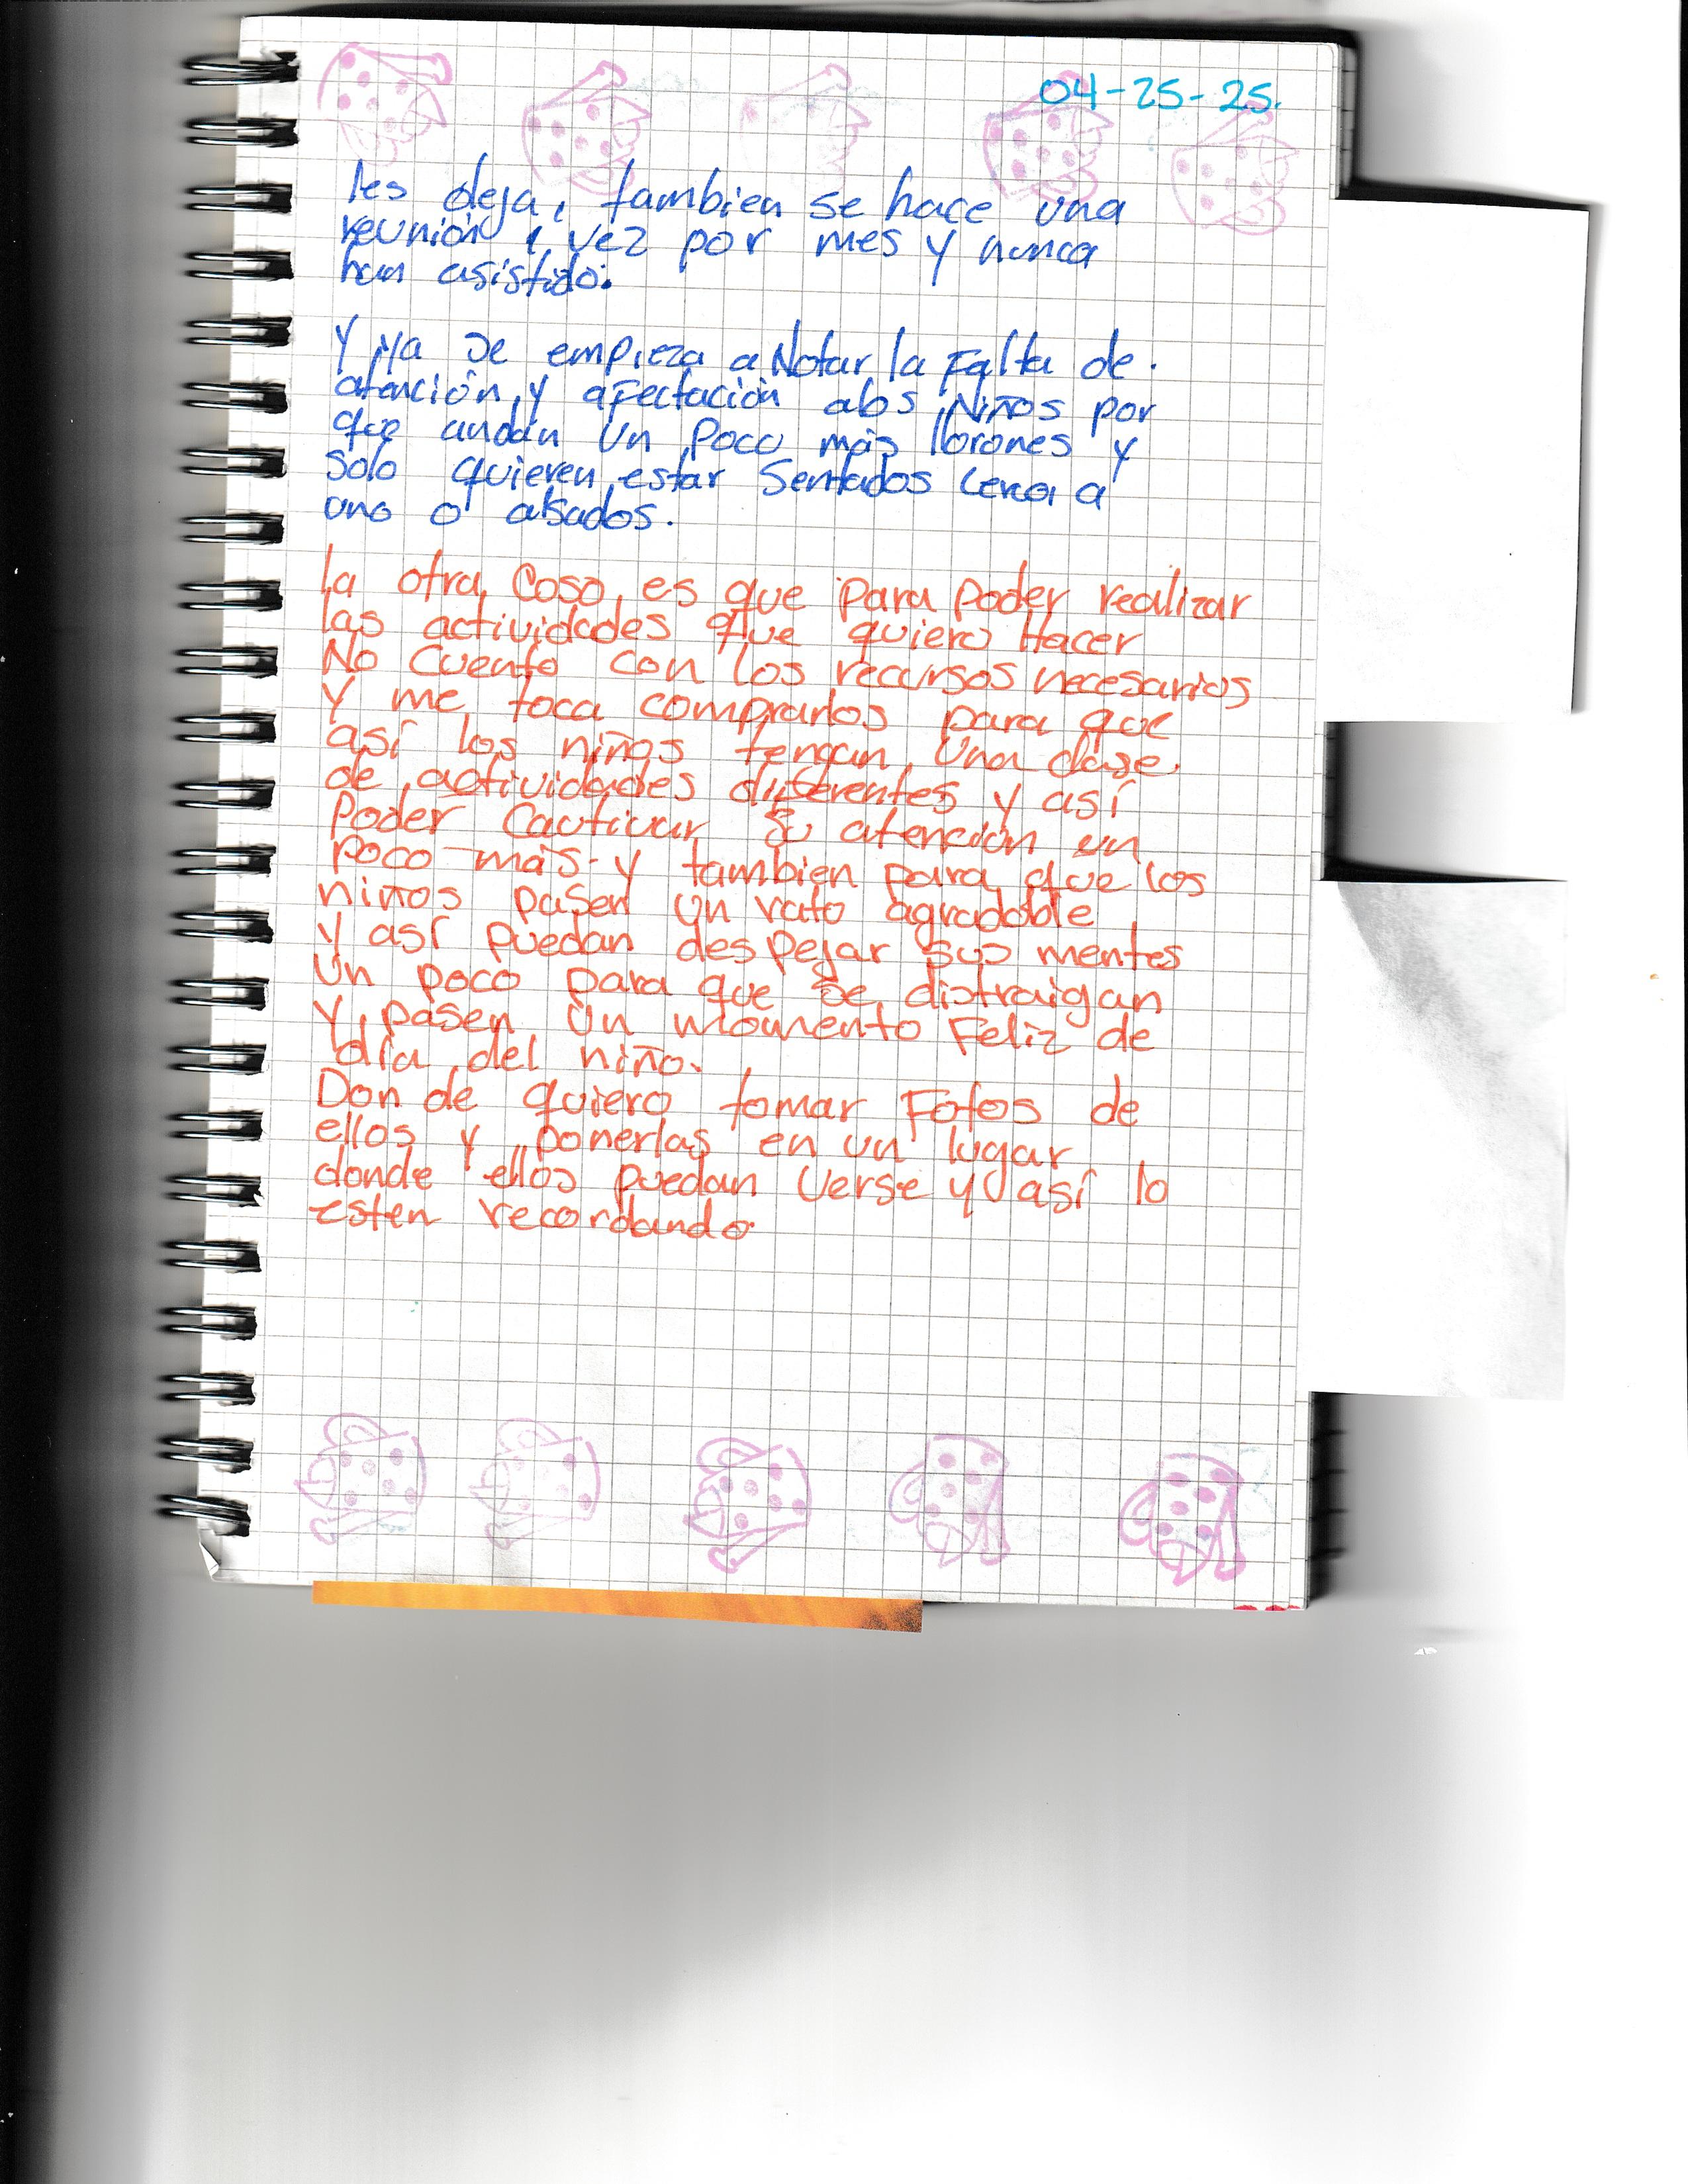 04-25-25.
les deja, tambien se hace una
reunión 1 vez por mes y nunca
han asistido.
Y ya se empieza a Notar la Falta de.
atención y afectación alos Niños por
que andan un poco más llorones y
solo quieren estar Sentados cerca a
uno o alsados.
la otra Cosa es que para poder realizar
las actividades que quiero Hacer
No cuento con los recursos necesarios
Y me toca comprarlos para que
así los niños tengan una clase
de actividades diferentes y así
Poder Cautivar su atención un
poco más y tambien para que los
niños pasen un rato agradable
Y así puedan despejar sus mentes
Un poco para que se distraigan
Y pasen un momento Feliz de
día del niño.
Don de quiero tomar Fotos de
ellos y ponerlas en un lugar
donde ellos puedan verse y así lo
esten recordando